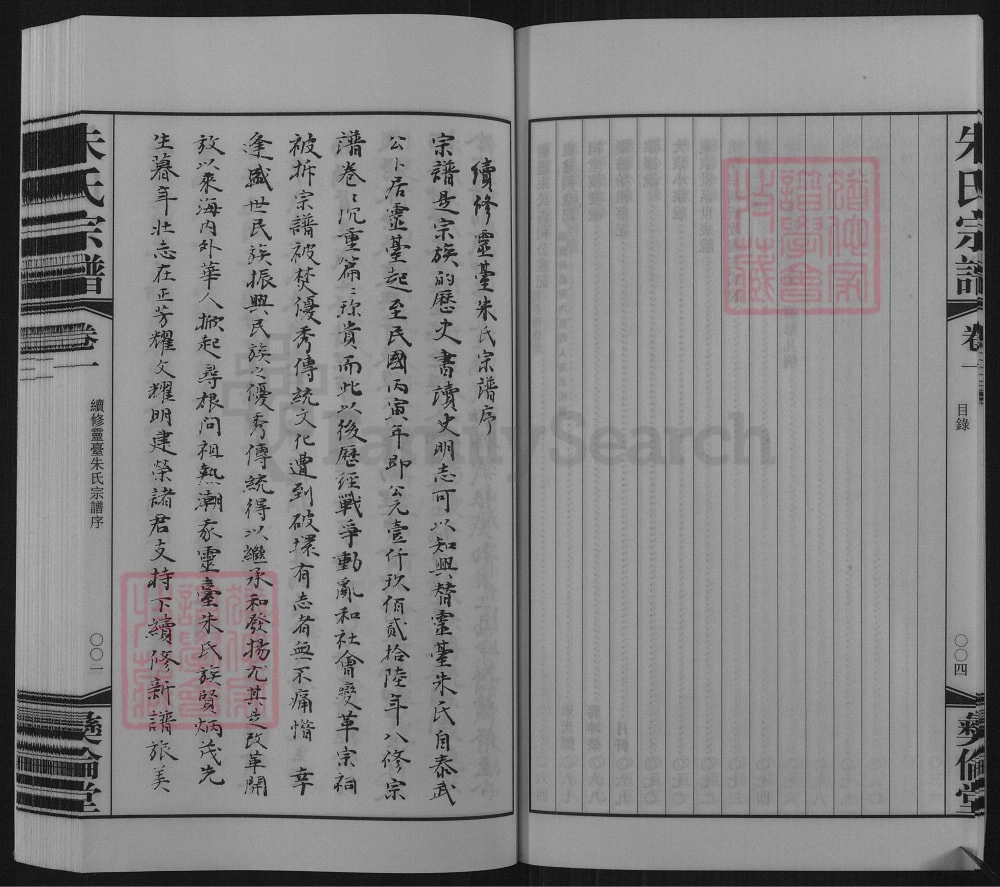 朱氏宗譜
卷一
目錄
〇〇四
彝倫堂
續修靈臺朱氏宗譜序
宗譜是宗族的歷史書讀史明志可以知興替靈臺朱氏自泰武
公卜居靈臺起至民國丙寅年即公元壹仟玖佰貳拾陸年八修宗
譜卷〻沉重篇〻珎貴而此以後歷經戰爭動亂和社會變革宗祠
被拆宗譜被焚優秀傳統文化遭到破壞有志者無不痛惜 幸
逢盛世民族振興民族之優秀傳統得以繼承和發揚尤其是改革開
放以來海內外華人掀起尋根问祖熱潮我靈臺朱氏族賢炳茂先
生暮年壯志在正芳耀文耀明建榮諸君支持下續修新譜旅美
朱氏宗譜
卷一
續修靈臺朱氏宗譜序
〇〇一
彝倫堂
FamilySearch